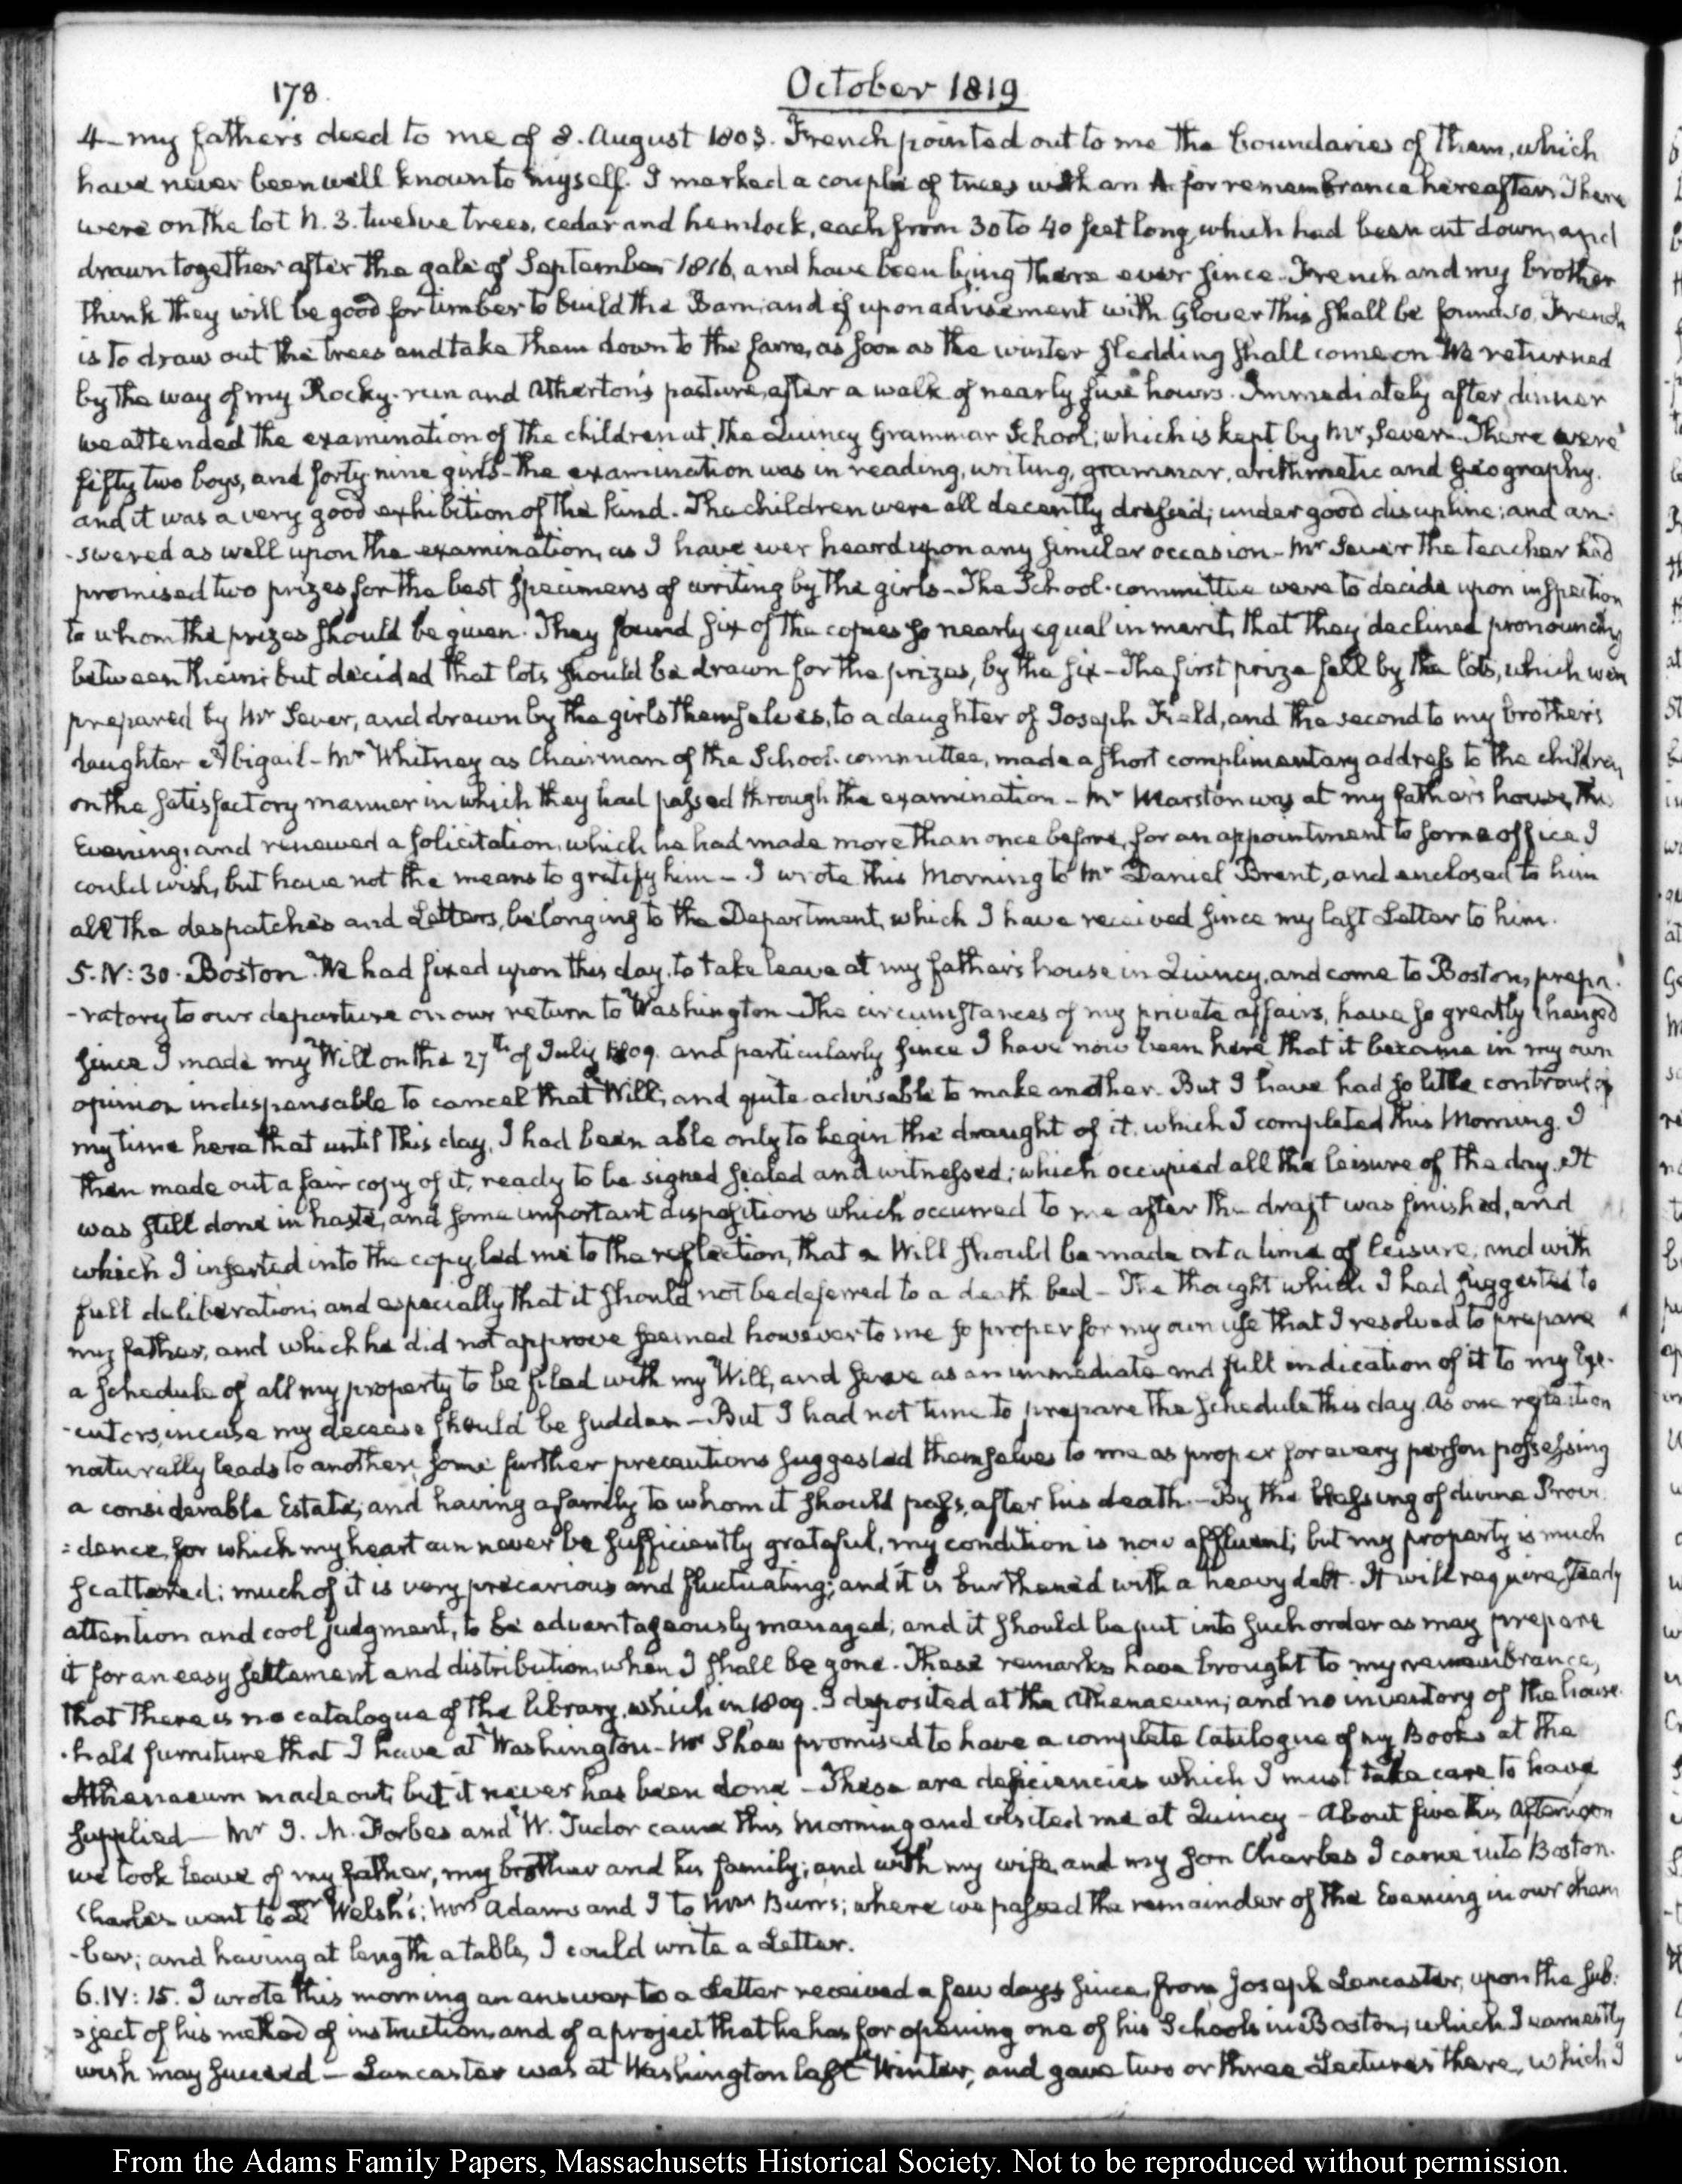 178.
October 1819
4— my father's deed to me of 8. August 1803. French pointed out to me the boundaries of them, which
have never been well known to myself. I marked a couple of trees with an A for remembrance hereafter. There
were on the lot N. 3. twelve trees, cedar and hemlock, each from 30 to 40 feet long, which had been cut down, and
drawn together after the gale of September 1816, and have been lying there ever since. French and my brother
think they will be good for timber to build the Barn; and if upon advisement with Glover this shall be found so, French
is to draw out the trees and take them down to the farm, as soon as the winter sledding shall come on. We returned
by the way of my Rocky-run and Atherton's pasture, after a walk of nearly five hours. Immediately after dinner
we attended the examination of the children at the Quincy Grammar School; which is kept by Mr Sever. There were
fifty two boys, and forty-nine girls— the examination was in reading, writing, grammar, arithmetic and Geography.
and it was a very good exhibition of the kind. The children were all decently dressed; under good discipline; and an-
-swered as well upon the examination, as I have ever heard upon any similar occasion— Mr Sever the teacher had
promised two prizes for the best specimens of writing by the girls— The School-committee were to decide upon inspection
to whom the prizes should be given. They found six of the copies so nearly equal in merit, that they declined pronouncing
between them; but decided that lots should be drawn for the prizes, by the six— The first prize fell by the lots, which were
prepared by Mr Sever, and drawn by the girls themselves, to a daughter of Joseph Field, and the second to my brother's
daughter Abigail— Mr Whitney as Chairman of the School-committee, made a short complimentary address to the children
on the satisfactory manner in which they had passed through the examination— Mr Marston was at my father's house, this
Evening, and renewed a solicitation, which he had made more than once before, for an appointment to some office. I
could wish, but have not the means to gratify him— I wrote this Morning to Mr Daniel Brent, and enclosed to him
all the despatches and Letters, belonging to the Department, which I have received since my last Letter to him.
5. IV: 30. Boston. We had fixed upon this day, to take leave at my father's house in Quincy, and come to Boston, prepa-
-ratory to our departure on our return to Washington— The circumstances of my private affairs, have so greatly changed
since I made my Will on the 27th of July 1809. and particularly since I have now been here that it became in my own
opinion indispensable to cancel that Will; and quite advisable to make another. But I have had so little controul of
my time here that until this day, I had been able only to begin the draught of it, which I completed this Morning. I
then made out a fair copy of it, ready to be signed sealed and witnessed; which occupied all the leisure of the day. It
was still done in haste, and some important dispositions which occurred to me after the draft was finished, and
which I inserted into the copy, led me to the reflection, that a Will should be made at a time of leisure, and with
full deliberation; and especially that it should not be deferred to a death bed— The thought which I had suggested to
my father, and which he did not approve seemed however to me so proper for my own use that I resolved to prepare
a schedule of all my property to be filed with my Will, and serve as an immediate and full indication of it to my Exe-
-cutors, in case my decease should be sudden— But I had not time to prepare the schedule this day. As one reflection
naturally leads to another, some further precautions suggested themselves to me as proper for every person possessing
a considerable Estate; and having a family to whom it should pass, after his death.— By the blessing of divine Provi-
=dence, for which my heart can never be sufficiently grateful, my condition is now affluent; but my property is much
scattered; much of it is very precarious and fluctuating; and it is burthened with a heavy debt. It will require steady
attention and cool judgment, to be advantageously managed; and it should be put into such order as may prepare
it for an easy settlement and distribution, when I shall be gone. These remarks have brought to my remembrance,
that there is no catalogue of the library, which in 1809. I deposited at the Athenaeum; and no inventory of the house-
-hold furniture that I have at Washington— Mr Shaw promised to have a complete Catalogue of my Books at the
Athenaeum made out; but it never has been done— These are deficiencies which I must take care to have
supplied— Mr J. M. Forbes and W. Tudor came this morning and visited me at Quincy— About five this Afternoon
we took leave of my father, my brother and his family; and with my wife, and my son Charles I came into Boston.
Charles went to Dr Welsh's; Mrs Adams and I to Mrs Burrs; where we passed the remainder of the Evening in our cham
-ber; and having at length a table, I could write a Letter.
6. IV: 15. I wrote this morning an answer to a Letter received a few days since, from Joseph Lancaster, upon the sub-
=ject of his method of instruction and of a project that he has for opening one of his Schools in Boston; which I earnestly
wish may succeed— Lancaster was at Washington last Winter, and gave two or three Lectures there, which I
From the Adams Family Papers, Massachusetts Historical Society. Not to be reproduced without permission.